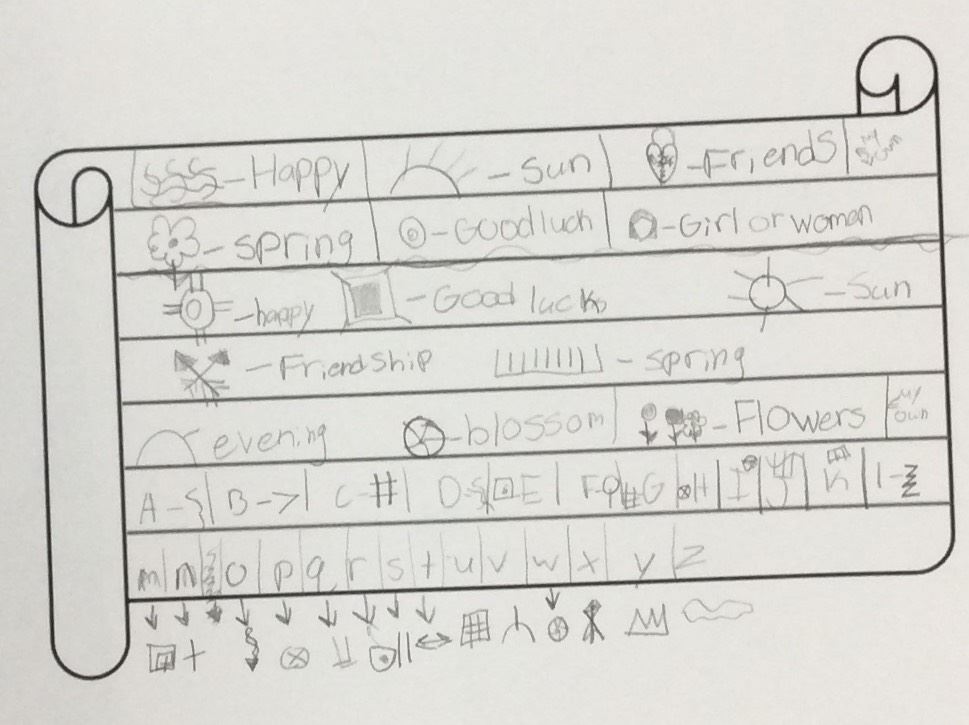 Happy - Sun - Friends my own
- spring - Goodluch - Girl or woman
- happy - Good luck - Sun
- Friendship - spring
evening - blossom - Flowers my own
A - B - C - D - E F G H I J K l -
m m o p q r s t u v w x y z